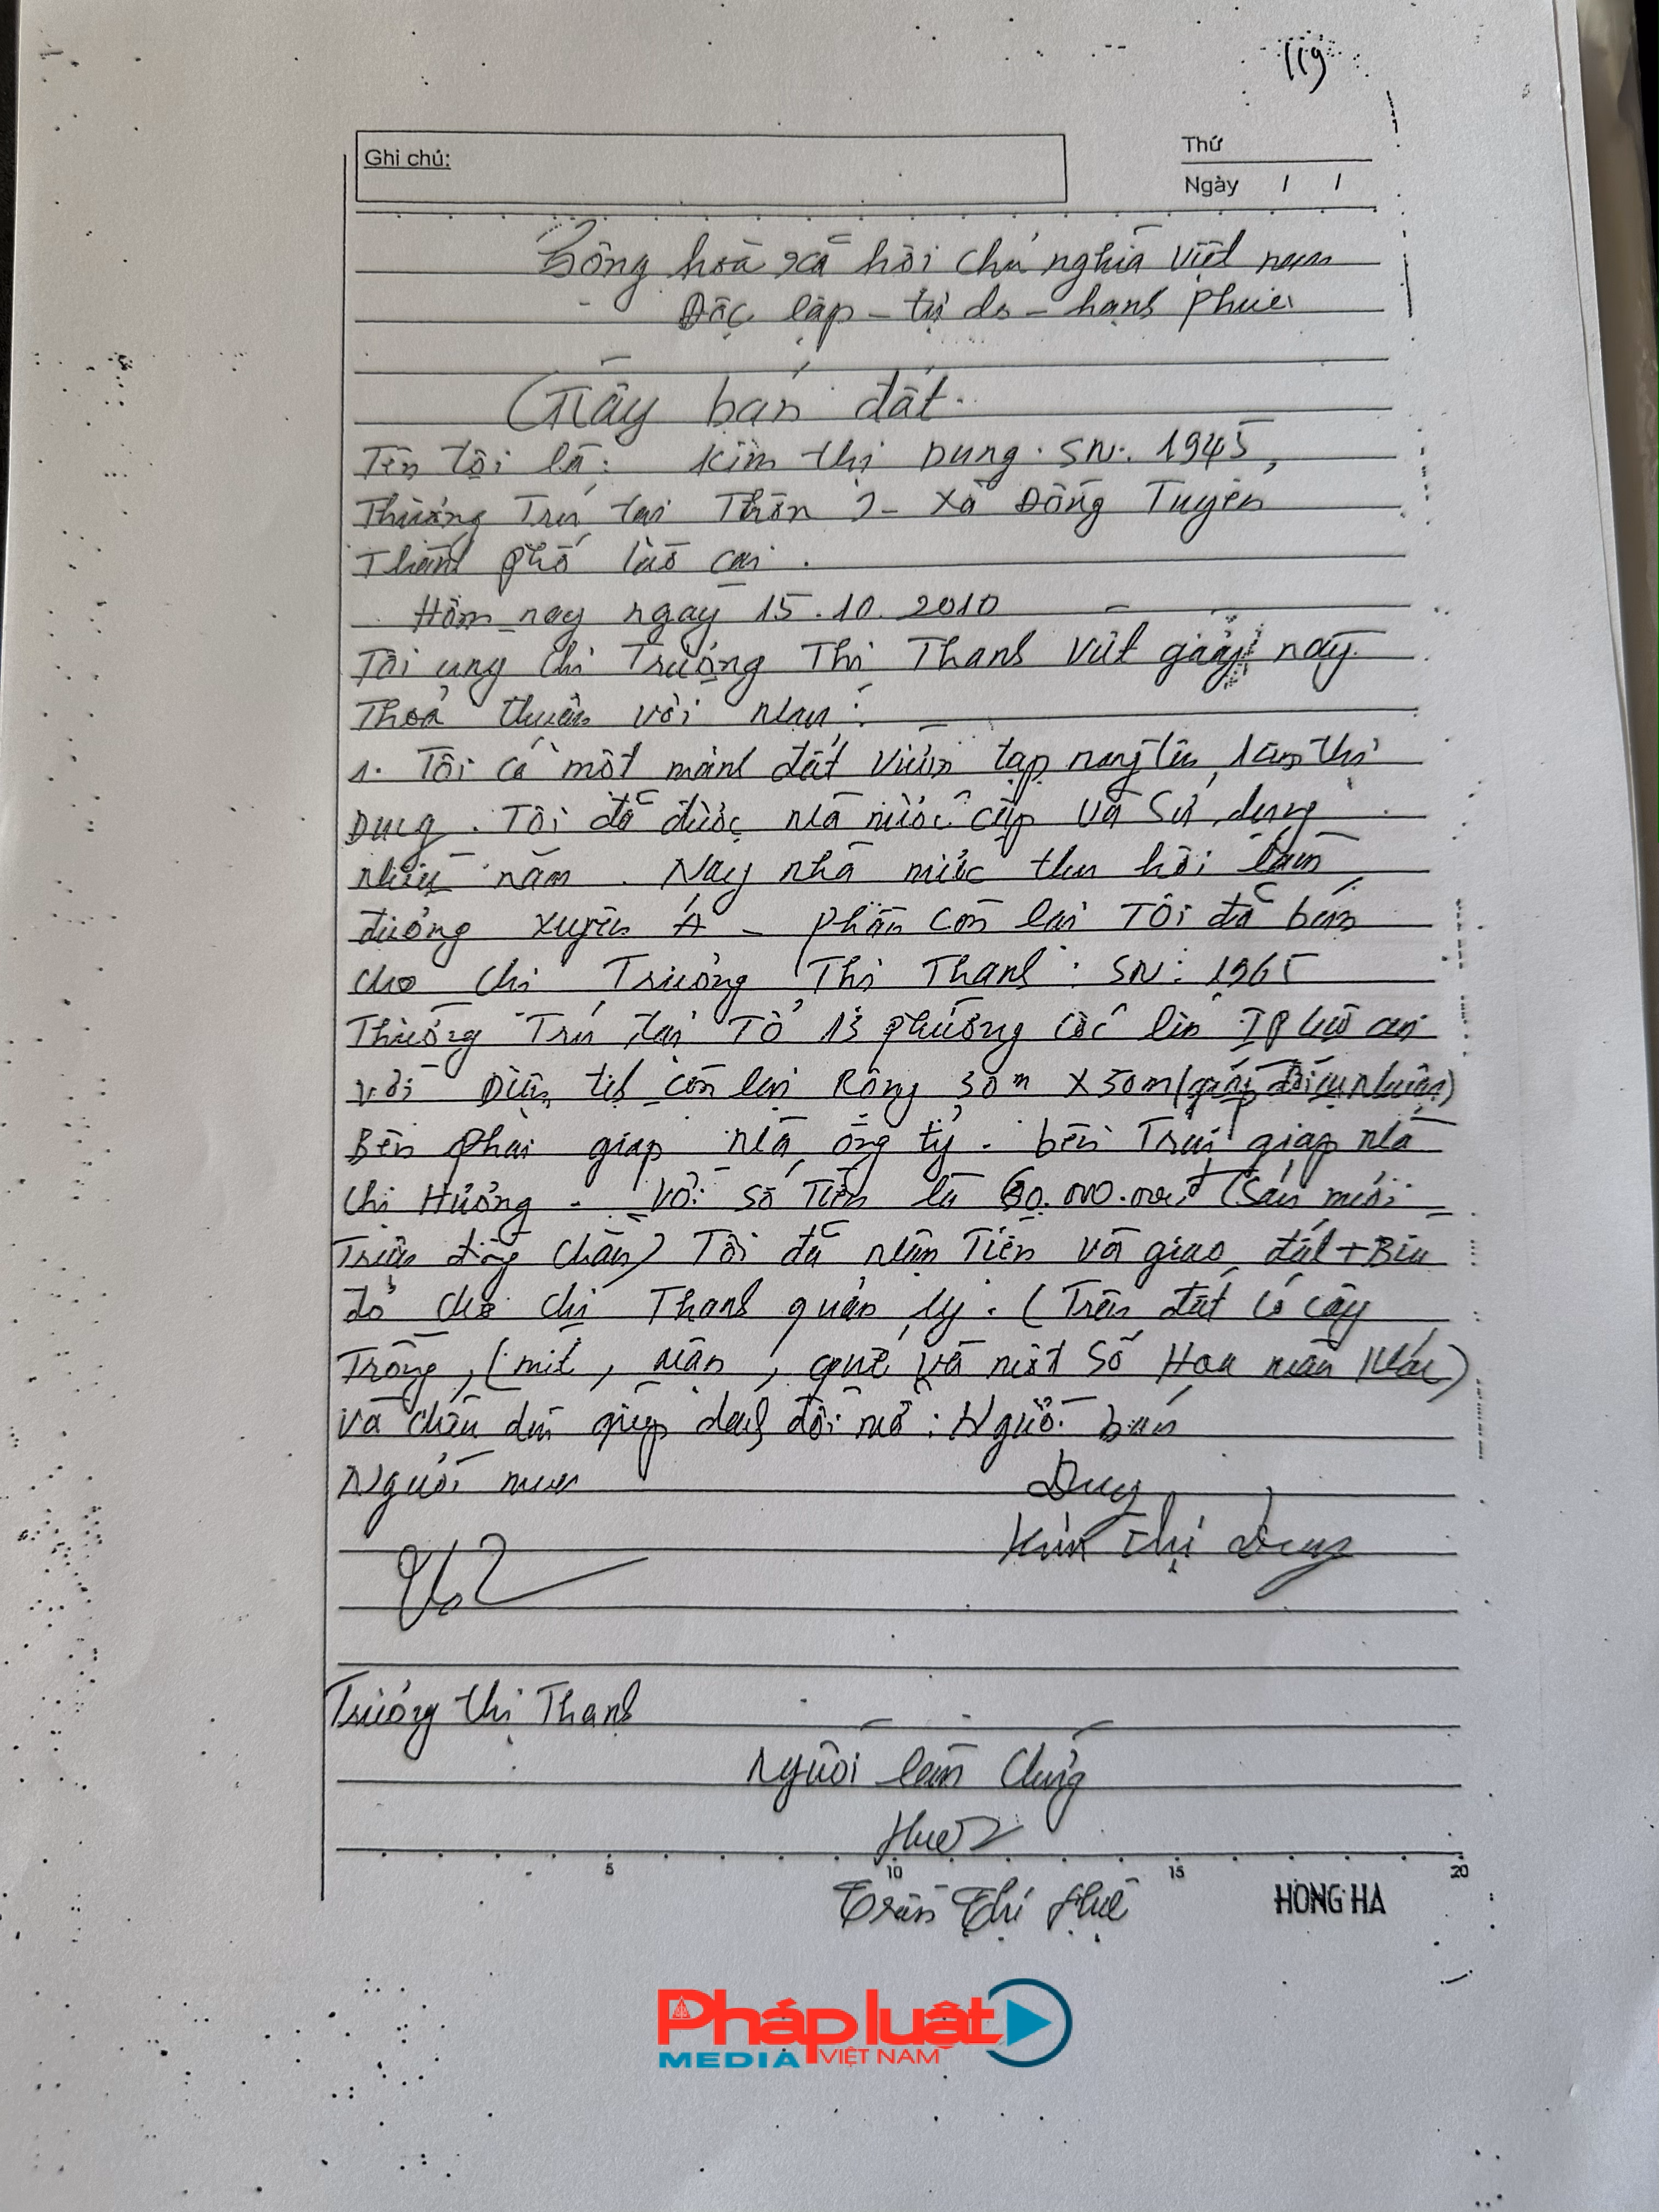 119
Ghi chú:
Thứ
Ngày / /
Cộng hoà xã hội chủ nghĩa Việt nam
Độc lập - tự do - hạnh phúc
Giấy bán đất.
Tên tôi là: Kim thị Dung. SN: 1945,
Thường Trú tại Thôn 2 - xã Đồng Tuyển
Thành phố lào cai.
Hôm nay ngày 15.10.2010
Tôi cùng chị Trương Thị Thanh viết giấy này
Thoả thuận với nhau:
1. Tôi có một mảnh đất vườn tạp mang tên thị
Dung. Tôi đã được nhà nước cấp và sử dụng
nhiều năm. Nay nhà nước thu hồi làm
đường xuyên Á - phần còn lại Tôi đã bán
cho chị Trương Thị Thanh: SN: 1965
Thường Trú tại Tổ 13 phường cốc lếu TP lào cai
với Diện tích còn lại Rộng 30m x 50m (
Bên phải giáp nhà ông tỷ. bên Trái giáp nhà
chị Hường - với số Tiền là 60.000.000đ (Sáu mươi
Triệu đồng chẵn) Tôi đã nhận Tiền và giao đất + Bìa
đỏ cho chị Thanh quản lý. (Trên đất có cây
Trồng, (mít, nhãn, quế và một số Hoa màu khác)
và chiều dài giáp đồi: Người bán
Người mua
Dung
Kim Thị Dung
Trương Thị Thanh
Người làm chứng
Huệ
Trần Thị Huệ
5 10 15 20
HONG HA
Pháp luật
MEDIA VIỆT NAM